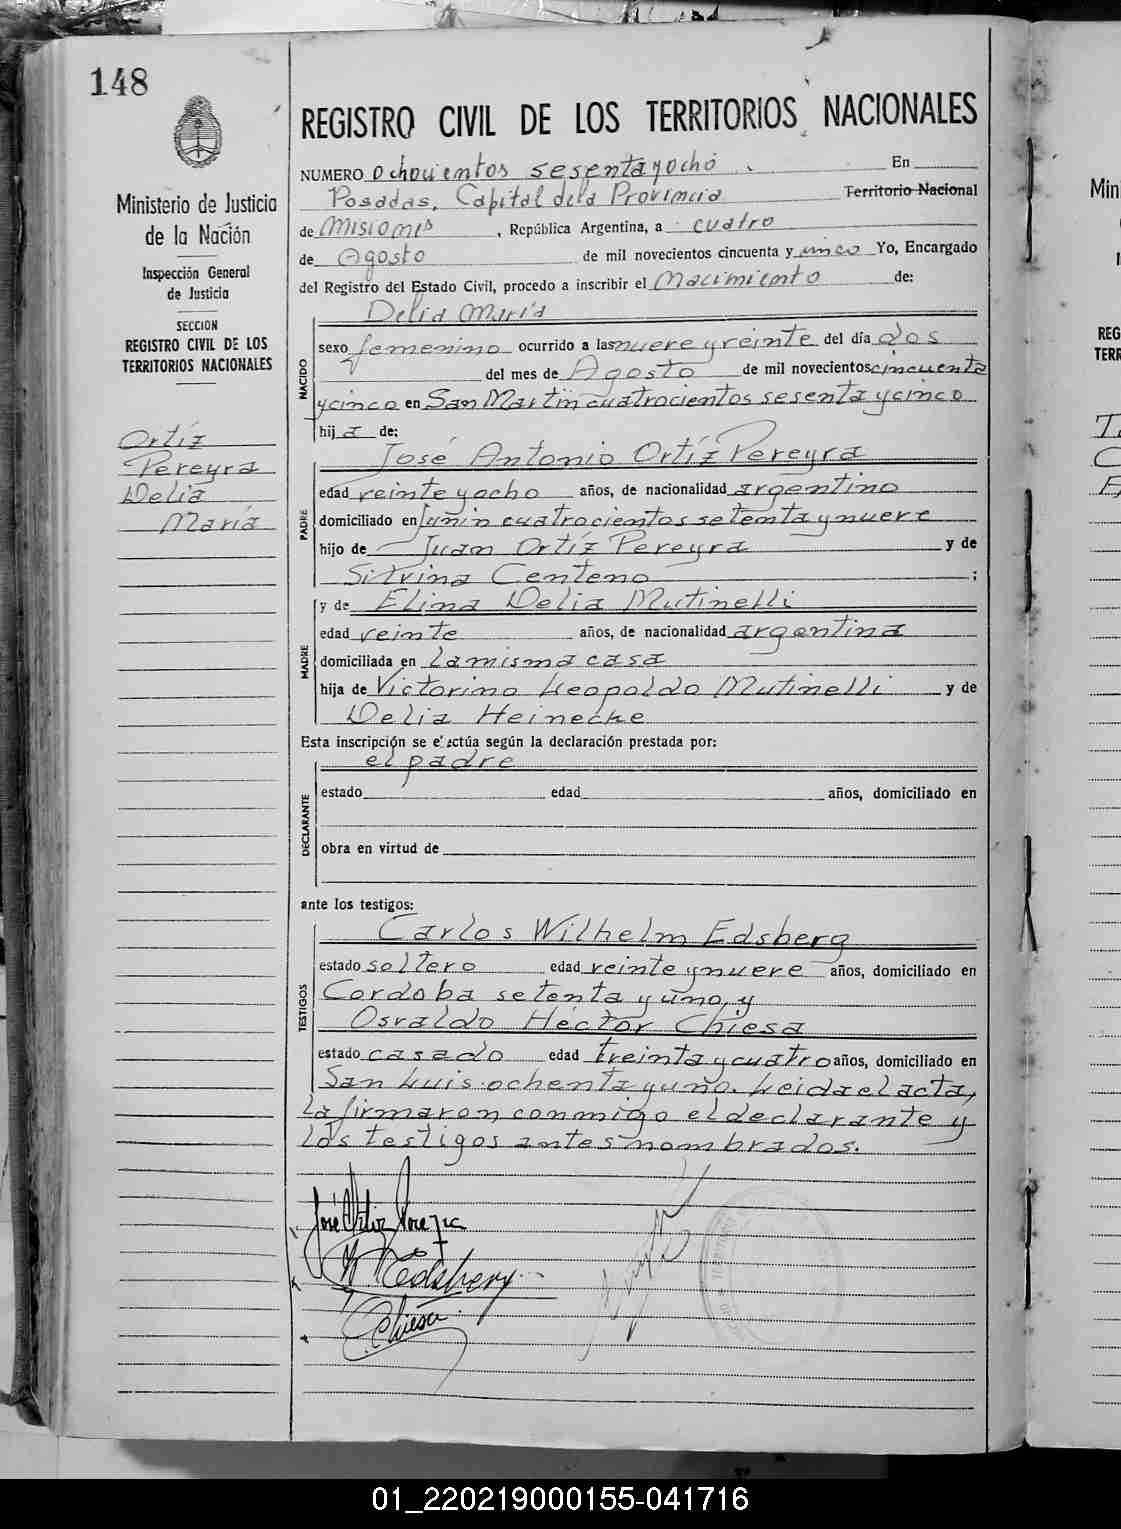 148
Ministerio de Justicia
de la Nación
Inspección General
de Justicia
SECCION
REGISTRO CIVIL DE LOS
TERRITORIOS NACIONALES
Ortíz
Pereyra
Delia
María
REGISTRO CIVIL DE LOS TERRITORIOS NACIONALES
NUMERO ochocientos sesenta y ocho En
Posadas, Capital de la Provincia Territorio Nacional
de Misiones, República Argentina, a cuatro
de Agosto de mil novecientos cincuenta y cinco Yo, Encargado
del Registro del Estado Civil, procedo a inscribir el Nacimiento de:
Delia María
NACIDO
sexo femenino ocurrido a las nueve y veinte del día dos
del mes de Agosto de mil novecientos cincuenta
y cinco en San Martín cuatrocientos sesenta y cinco
hija de:
José Antonio Ortíz Pereyra
PADRE
edad veinte y ocho años, de nacionalidad argentino
domiciliado en Junín cuatrocientos setenta y nueve
hijo de Juan Ortíz Pereyra y de
Silvina Centeno ;
y de Elina Delia Mutinelli
MADRE
edad veinte años, de nacionalidad argentina
domiciliada en la misma casa
hija de Victorino Leopoldo Mutinelli y de
Delia Heinecke
Esta inscripción se efectúa según la declaración prestada por:
el padre
DECLARANTE
estado edad años, domiciliado en
obra en virtud de
ante los testigos:
Carlos Wilhelm Edsberg
TESTIGOS
estado soltero edad veinte y nueve años, domiciliado en
Cordoba setenta y uno, y
Osvaldo Héctor Chiesa
estado casado edad treinta y cuatro años, domiciliado en
San Luis ochenta y uno. Leida el acta,
la firmaron conmigo el declarante y
los testigos antes nombrados.
José Ortiz Pereyra
Edsberg
Chiesa
Mini
REG
TERR
01_220219000155-041716